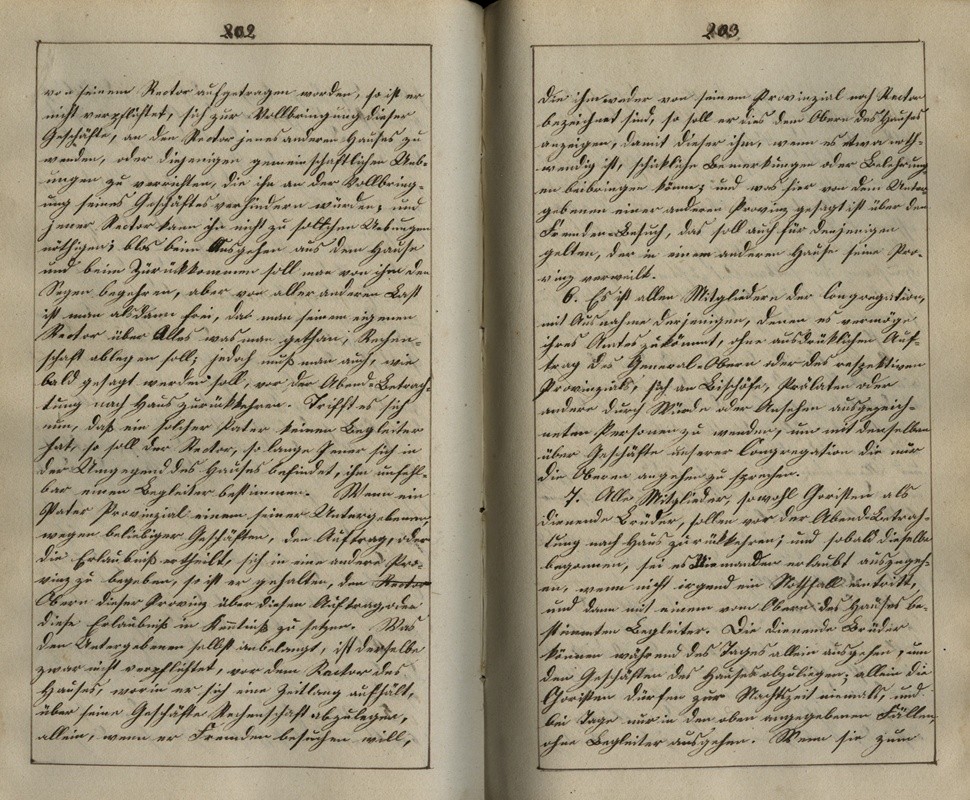 202
von seinem Rector aufgetragen worden, so ist er
nicht verpflichtet, sich zur Vollbringung dieser
Geschäfte, an den Rector jenes anderen Hauses zu
wenden, oder diejenigen gemeinschaftlichen Ueb-
ungen zu verrichten, die ihn an der Vollbring-
ung seines Geschäftes verhindern würden; und
jener Rector kann ihn nicht zu solchen Uebungen
nöthigen; blos beim Ausgehen aus dem Hause
und beim Zurückkommen soll man von ihm den
Segen begehren, aber von aller anderen Last
ist man alsdann frei, da man seinem eigenen
Rector über Alles was man gethan, Rechen-
schaft ablegen soll; jedoch muß man auch, wie
bald gesagt werden soll, vor der Abend-Betrach-
tung nach Haus zurückkehren. Trifft es sich
nun, daß ein solcher Pater keinen Begleiter
hat, so soll der Rector, so lange Jener sich in
der Umgegend des Hauses befindet, ihm unfehl-
bar einen Begleiter bestimmen. Wenn ein
Pater Provinzial einem seiner Untergebenen,
wegen beliebiger Geschäften, den Auftrag, oder
die Erlaubniß ertheilt, sich in eine andere Pro-
vinz zu begeben, so ist er gehalten, den Rector
Obern dieser Provinz über diesen Auftrag, oder
diese Erlaubniß in Kenntniß zu setzen. Was
den Untergebenen selbst anbelangt, ist derselbe
zwar nicht verpflichtet, vor dem Rector des
Hauses, worin er sich eine Zeitlang aufhält,
über seine Geschäfte Rechenschaft abzulegen,
allein, wenn er Fremden besuchen will,
203
die ihm weder von seinem Provinzial noch Rector
bezeichnet sind, so soll er dies dem Obern des Hauses
anzeigen, damit dieser ihm, wenn es etwa noth-
wendig ist, schickliche Bemerkungen oder Belehrung-
en beibringen könne; und was hier von dem Unter-
gebenen einer anderen Provinz gesagt ist über den
Fremden-Besuch, das soll auch für denjenigen
gelten, der in einem anderen Hause seine Pro-
vinz verweilt.
6. Es ist allen Mitgliedern der Congregation,
mit Ausnahme derjenigen, denen es vermöge
ihres Amtes zukömmt, ohne ausdrücklichen Auf-
trag des General-Obern oder des respektiven
Provinzials, sich an Bischöfe, Prälaten oder
andere durch Würde oder Ansehen ausgezeich-
neten Personen zu wenden, um mit denselben
über Geschäfte unserer Congregation die nur
die Oberen angehen zu sprechen.
7. Alle Mitglieder, sowohl Choristen als
dienende Brüder, sollen vor der Abend-Betrach-
tung nach Haus zurückkehren; und sobald dieselbe
begonnen, sei es Niemanden erlaubt auszugeh-
en, wenn nicht irgend ein Nothfall eintritt,
und dann mit einem vom Obern des Hauses be-
stimmten Begleiter. Die dienende Brüder
können während des Tages allein ausgehen, um
den Geschäften des Hauses obzuliegen; allein die
Choristen dürfen zur Nachtszeit niemals, und
bei Tage nur in den oben angegebenen Fällen
ohne Begleiter ausgehen. Wenn sie zum